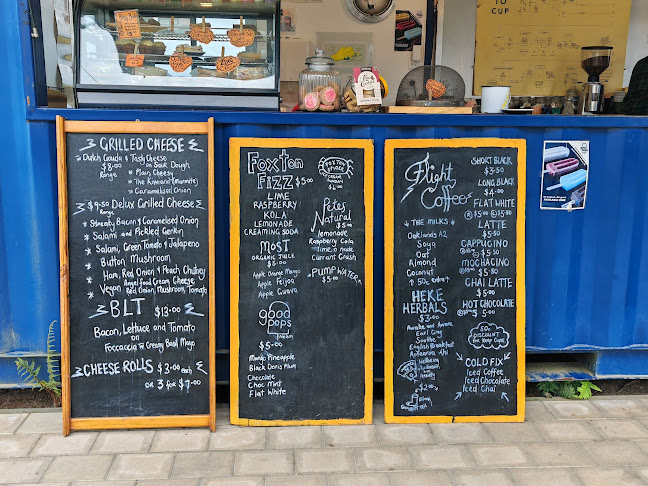 TO CUP
GRILLED CHEESE
Dutch Gouda & Tasty Cheese
$8.00 on Sour Dough
Range
* Plain Cheesy
* The Kiwiana (Marmite)
* Caramelised Onion
$9.50 Delux Grilled Cheese
Range
* Streaky Bacon & Caramelised Onion
* Salami and Pickled Gerkin
* Salami, Green Tomato & Jalapeno
* Button Mushroom
* Ham, Red Onion & Peach Chutney
* Vegan Angel Food Cream Cheese
Red Onion, Mushroom, Tomato
BLT $13.00
Bacon, Lettuce and Tomato
on
Foccaccia w Creamy Basil Mayo
CHEESE ROLLS $3.00 each
OR 3 for $7.00
Foxton
FIZZ $5.00
LIME
RASPBERRY
KOLA
LEMONADE
CREAMING SODA
MOST
ORGANIC JUICE
$5.00
Apple Orange Mango
Apple Feijoa
Apple Guava
good
pops
$5.00
Mango Pineapple
Black Doris Plum
Chocolate
Choc Mint
Flat White
FOXTON
FIZZ
Petes
Natural
$5.00
lemonade
Raspberry Cola
Lime o nade
Currant Crush
PUMP WATER
$5.00
Flight
Coffee
THE MILKS
Oaklands A2
Soya
Oat
Almond
Coconut
↑ 50c extra
HEKE
HERBALS
Earl Grey
Soothe
English Breakfast
Aotearoa Chi
SHORT BLACK
$3.50
LONG BLACK
$4.00
FLAT WHITE
$5.00 $5.50
LATTE
$5.50
CAPPUCINO
$5.50
MOCHACINO
$5.50
CHAI LATTE
$5.50
HOT CHOCOLATE
$5.00
50c
DISCOUNT
for Keep Cups
COLD FIX
Iced Coffee
Iced Chocolate
Iced Chai